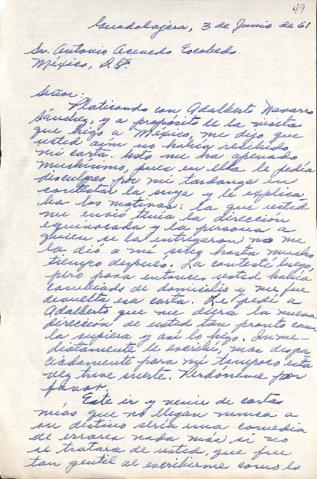 49
Guadalajara, 3 de Junio de 61
Sr. Antonio Acevedo Escobedo.
México, D.F.
Señor:
Platicando con Adalberto Navarro
Sánchez, y a propósito de la visita
que hizo a México, me dijo que
usted aún no había recibido
mi carta. Esto me ha apenado
muchísimo, pues en ella le pedía
disculpas por mi tardanza en
contestar la suya y le explica
ba los motivos: la que usted
me envió tenía la dirección
equivocada y la persona a
quien se la entregaron no me
la dió a mí sino hasta mucho
tiempo después. La contesté luego,
pero para entonces usted había
cambiado de domicilio y me fue
devuelta esa carta. Le pedí a
Adalberto que me diera la nueva
dirección de usted tan pronto como
la supiera y así lo hizo. Inme-
diatamente le escribí, mas desgra
ciadamente para mí tampoco esta
vez tuve suerte. Perdóneme por
favor.
Este ir y venir de cartas
mías que no llegan nunca a
su destino sería una comedia
de errores nada más, si no
se tratara de usted, que fue
tan gentil al escribirme como lo